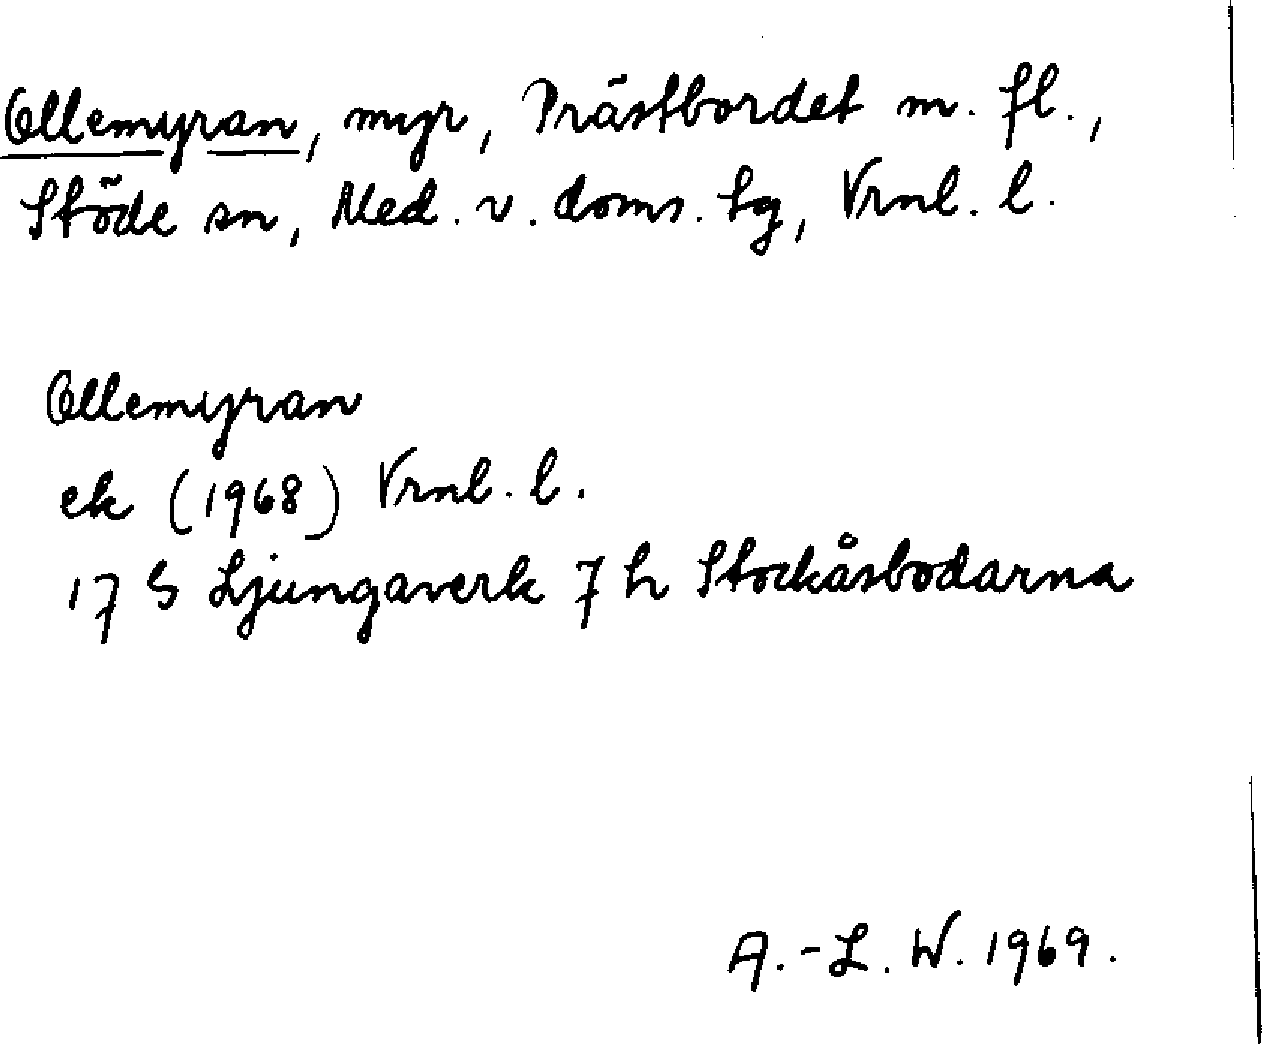 Ollemyran, myr, Prästbordet m. fl.,
Stöde sn, Med. v. doms. tg, Vrnl. l.
Ollemyran
ek (1968) Vrnl. l.
17 G Ljungaverk 7 h Stockåsbodarna
A.-L. W. 1969.